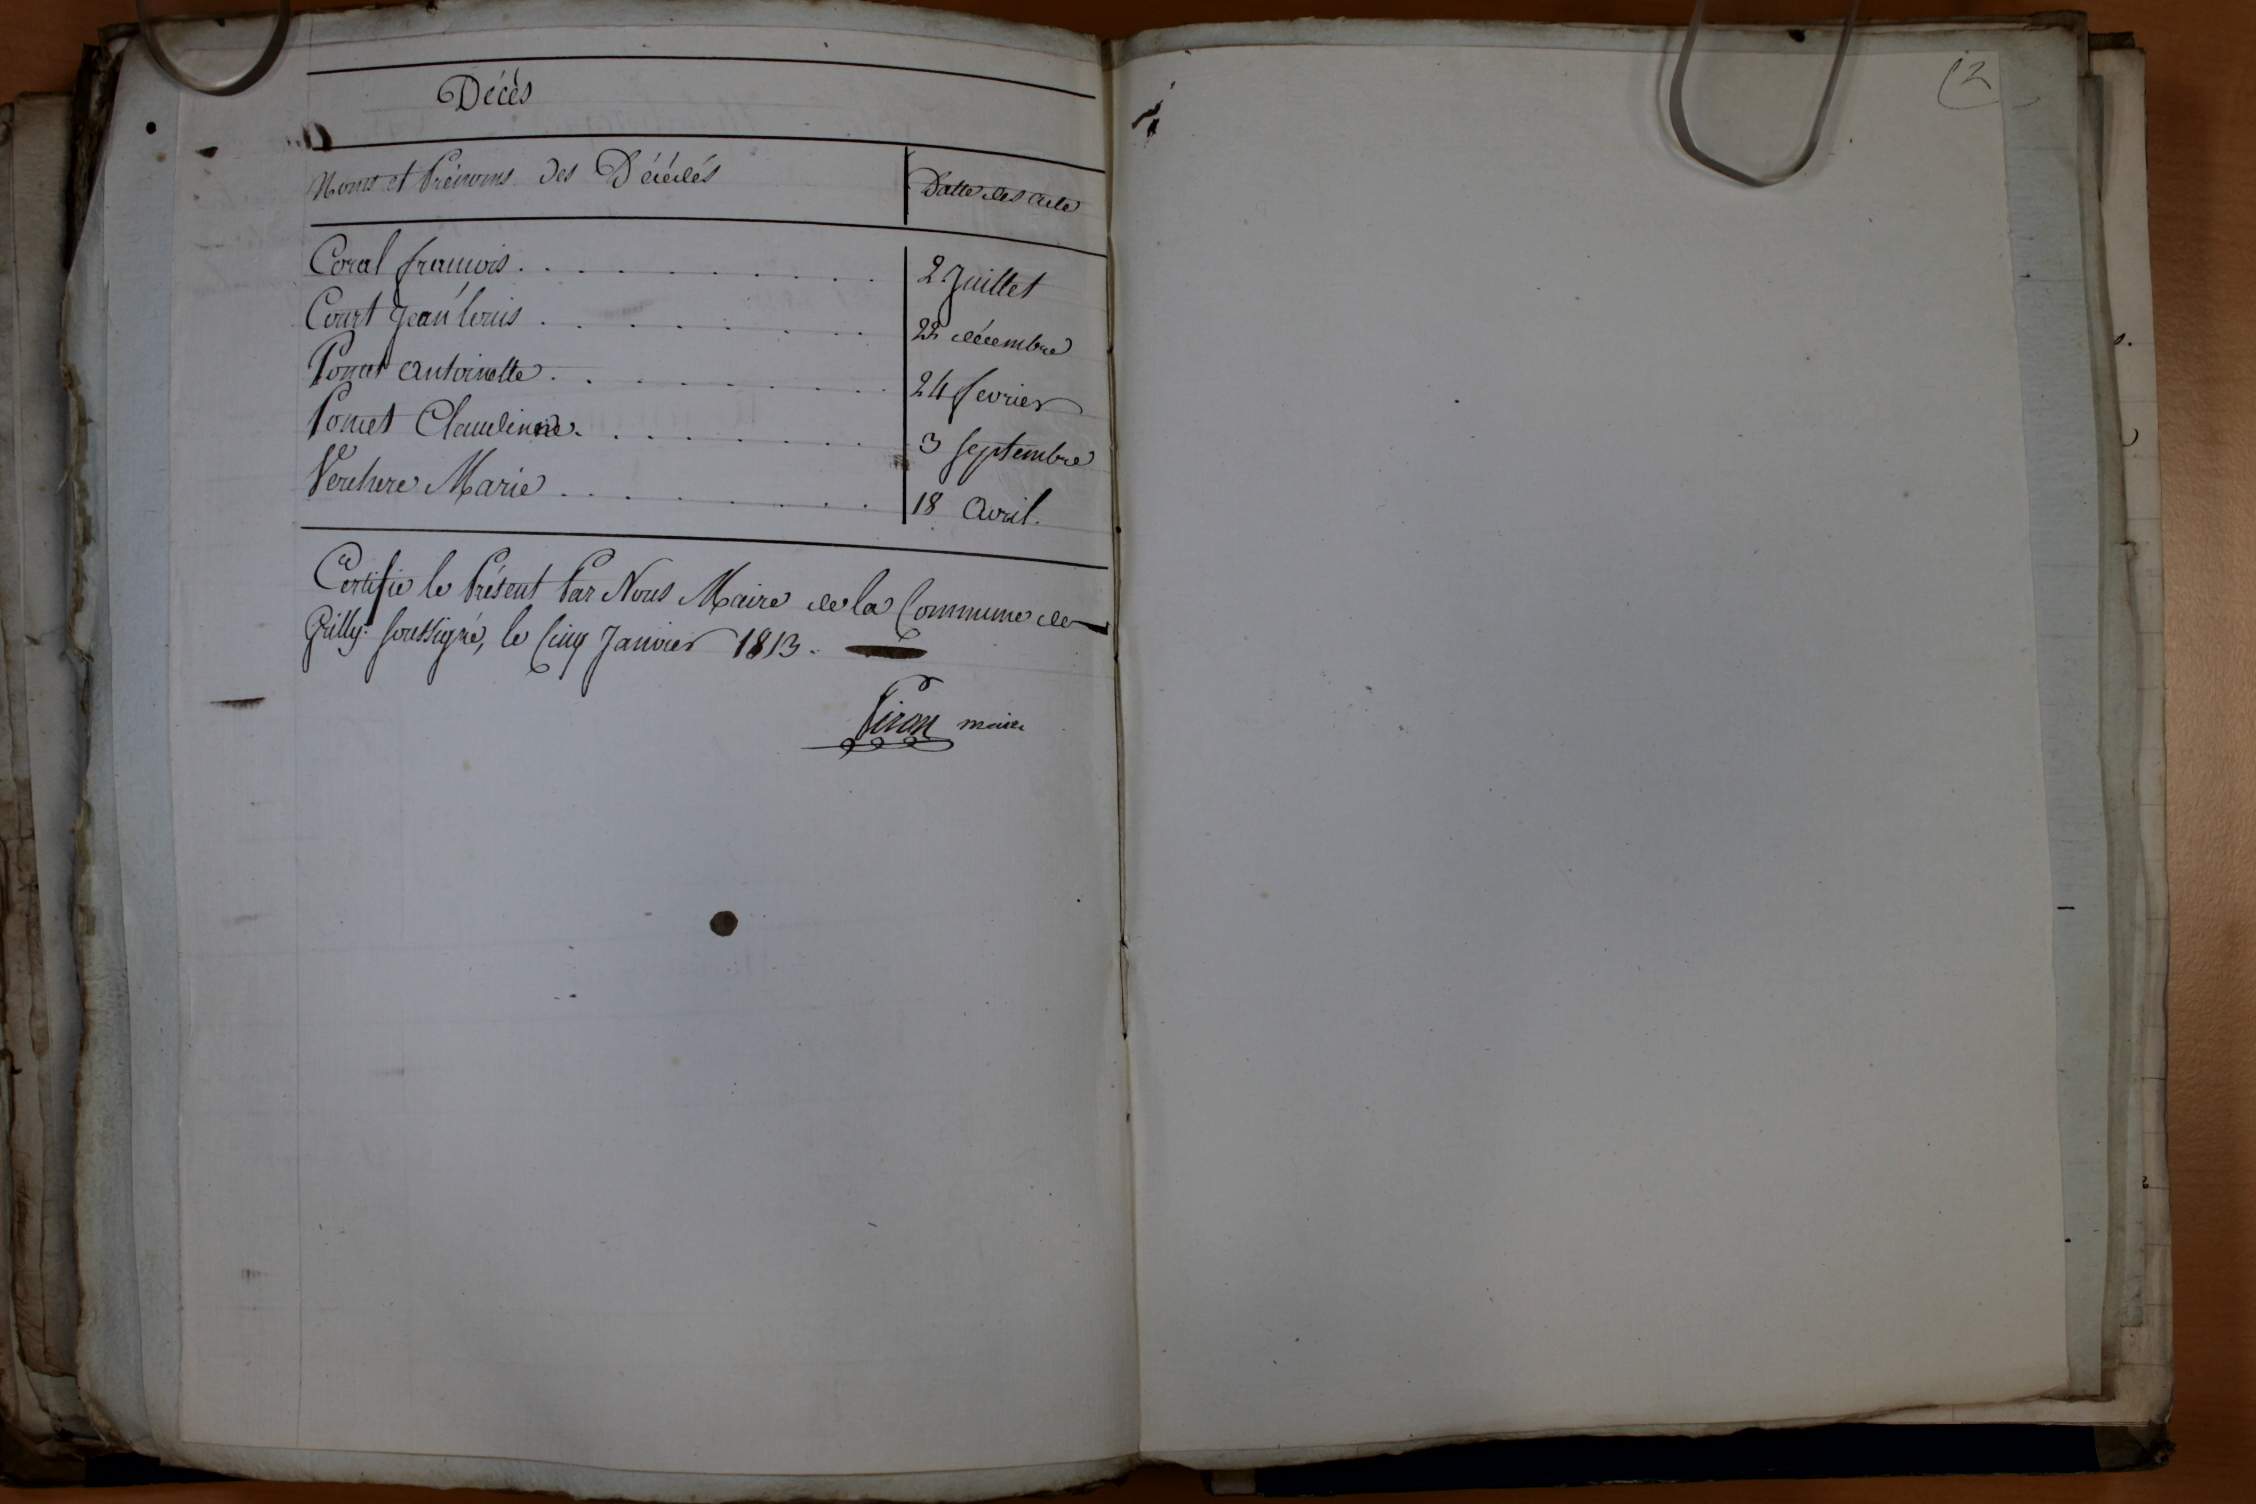 Décès
Noms et Prénoms des Décédés
Datte des acte
Coral françois . . . . . . . . . . 2 Juillet
Court Jean louis . . . . . . . . 22 décembre
Poncet Antoinette . . . . . . . . 24 fevrier
Poncet Claudine . . . . . . . . 3 septembre
Verchere Marie . . . . . . . . 18 Avril.
Certifié le Présent Par Nous Maire de la Commune de
Grilly soussigné, le Cinq Janvier 1813.
Giron maire
2